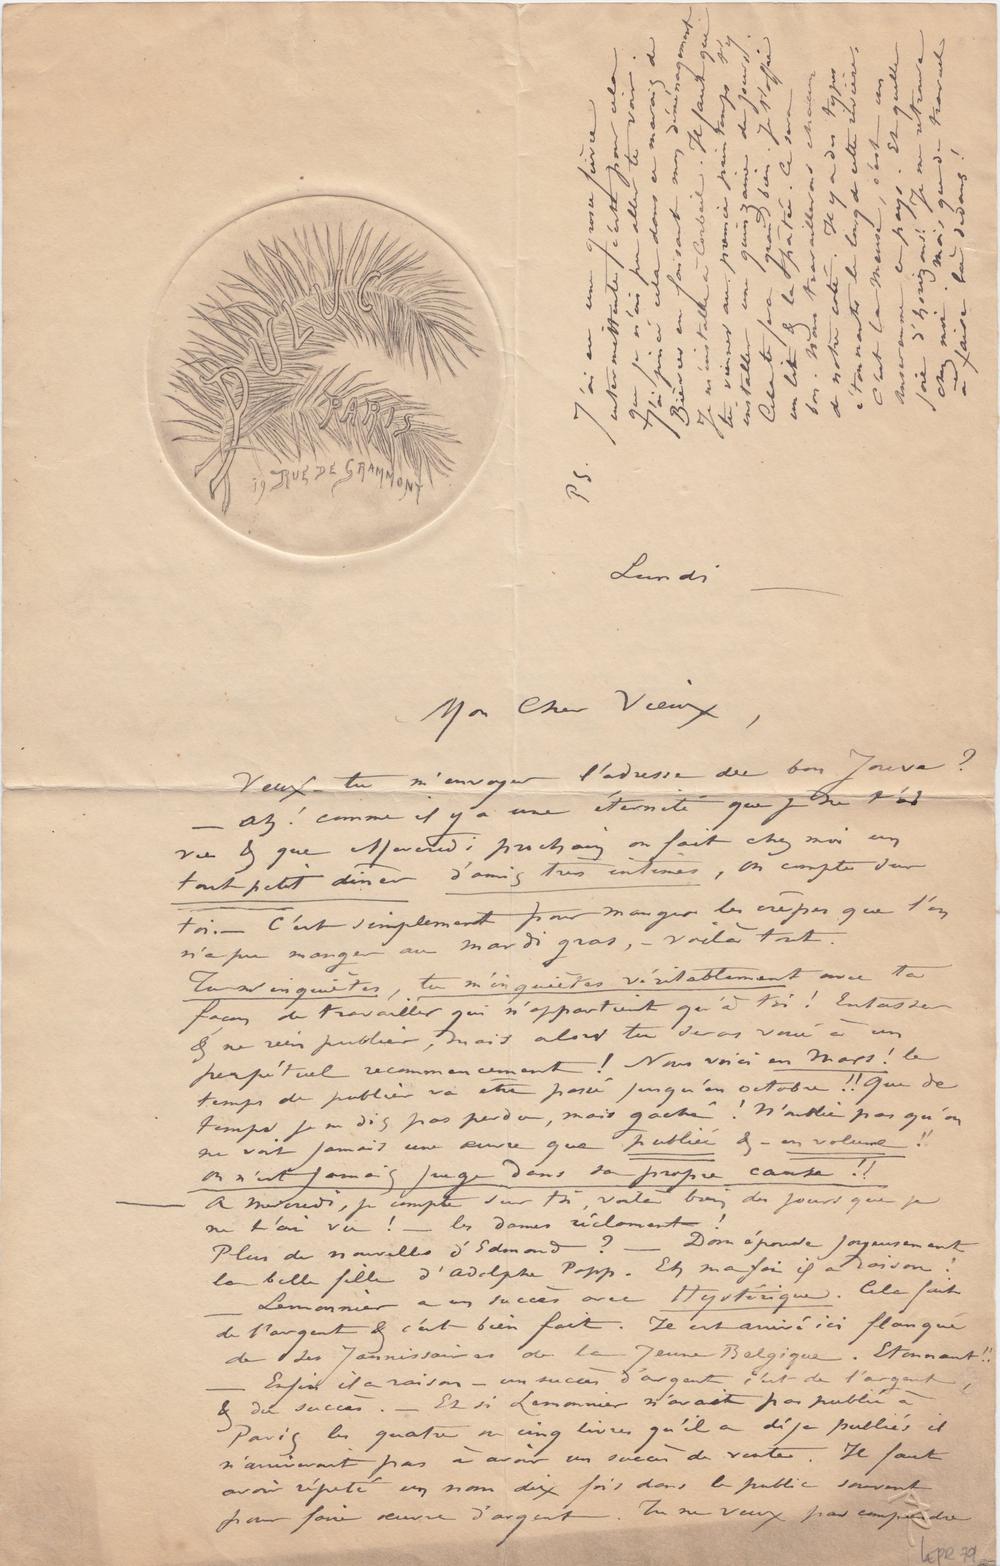 DULUC
PARIS
19 RUE DE GRAMMONT
P S.
J'ai eu une grosse fièvre
intermittente, c'est pour cela
que je n'ai pu aller te voir.
J'ai pincé cela dans ce marais de
Bièvres en faisant mon déménagement
Je m'installe à Corbeil. Il faut que
tu viennes au premier printemps t'y
installer une quinzaine de jours.
Cela te fera grand bien. Je t'offre
un lit & la pâtée. Ce sera
bon. Nous travaillerons chacun
de notre côté. Il y a des types
étonnants le long de cette rivière.
C'est la Meuse, c'est un
pays. Et quelle
joie d'horizons! Je me retrouve
chez moi. Mais que de travail
à faire là dedans!
Lundi
Mon Cher Vieux,
Veux-tu m'envoyer l'adresse du bon ?
— Ah! comme il y a une éternité que je ne t'ai
vu & que Mercredi prochain on fait chez moi un
tout petit dîner d'amis très intimes, on compte sur
toi. — C'est simplement pour manger les crêpes que l'on
n'a pu manger au mardi gras, — voilà tout.
Tu m'inquiètes, tu m'inquiètes véritablement avec ta
façon de travailler qui n'appartient qu'à toi! Entasser
& ne rien publier, mais alors tu seras voué à un
perpétuel recommencement! Nous voici en Mars! le
temps de publier va être passé jusqu'en octobre!! Que de
temps je ne dis pas perdu, mais gâché! N'oublie pas qu'on
ne voit jamais une œuvre que publiée & - en volume!!
On n'est jamais juge dans sa propre cause!!
— A Mercredi, je compte sur toi, voilà bien des jours que je
ne t'ai vu! — les dames réclament!
Plus de nouvelles d'Edmond? — Dom épouse joyeusement
la belle fille d'Adolphe Popp. Eh ma foi il a raison!
— Lemonnier a un succès avec Hystérique. Cela fait
de l'argent & c'est bien fait. Il est arrivé ici flanqué
de ses Jannissaires de la Jeune Belgique. Etonnant!!
— Enfin il a raison — un succès d'argent c'est de l'argent,
& du succès. — Et si Lemonnier n'avait pas publié à
Paris les quatre ou cinq livres qu'il a déjà publiés il
n'arriverait pas à avoir un succès de vente. Il faut
avoir répété un nom dix fois dans le public souvent
pour faire œuvre d'argent. Tu ne veux pas comprendre